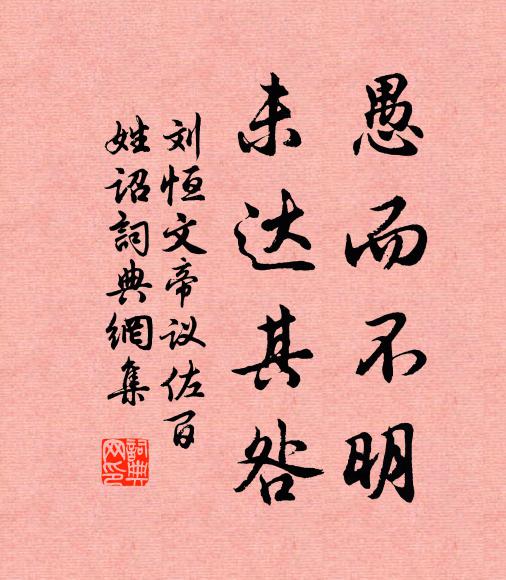 愚而不明
未达其咎
刘恒文帝议佐百
姓诏詞典網集
詞典
网印